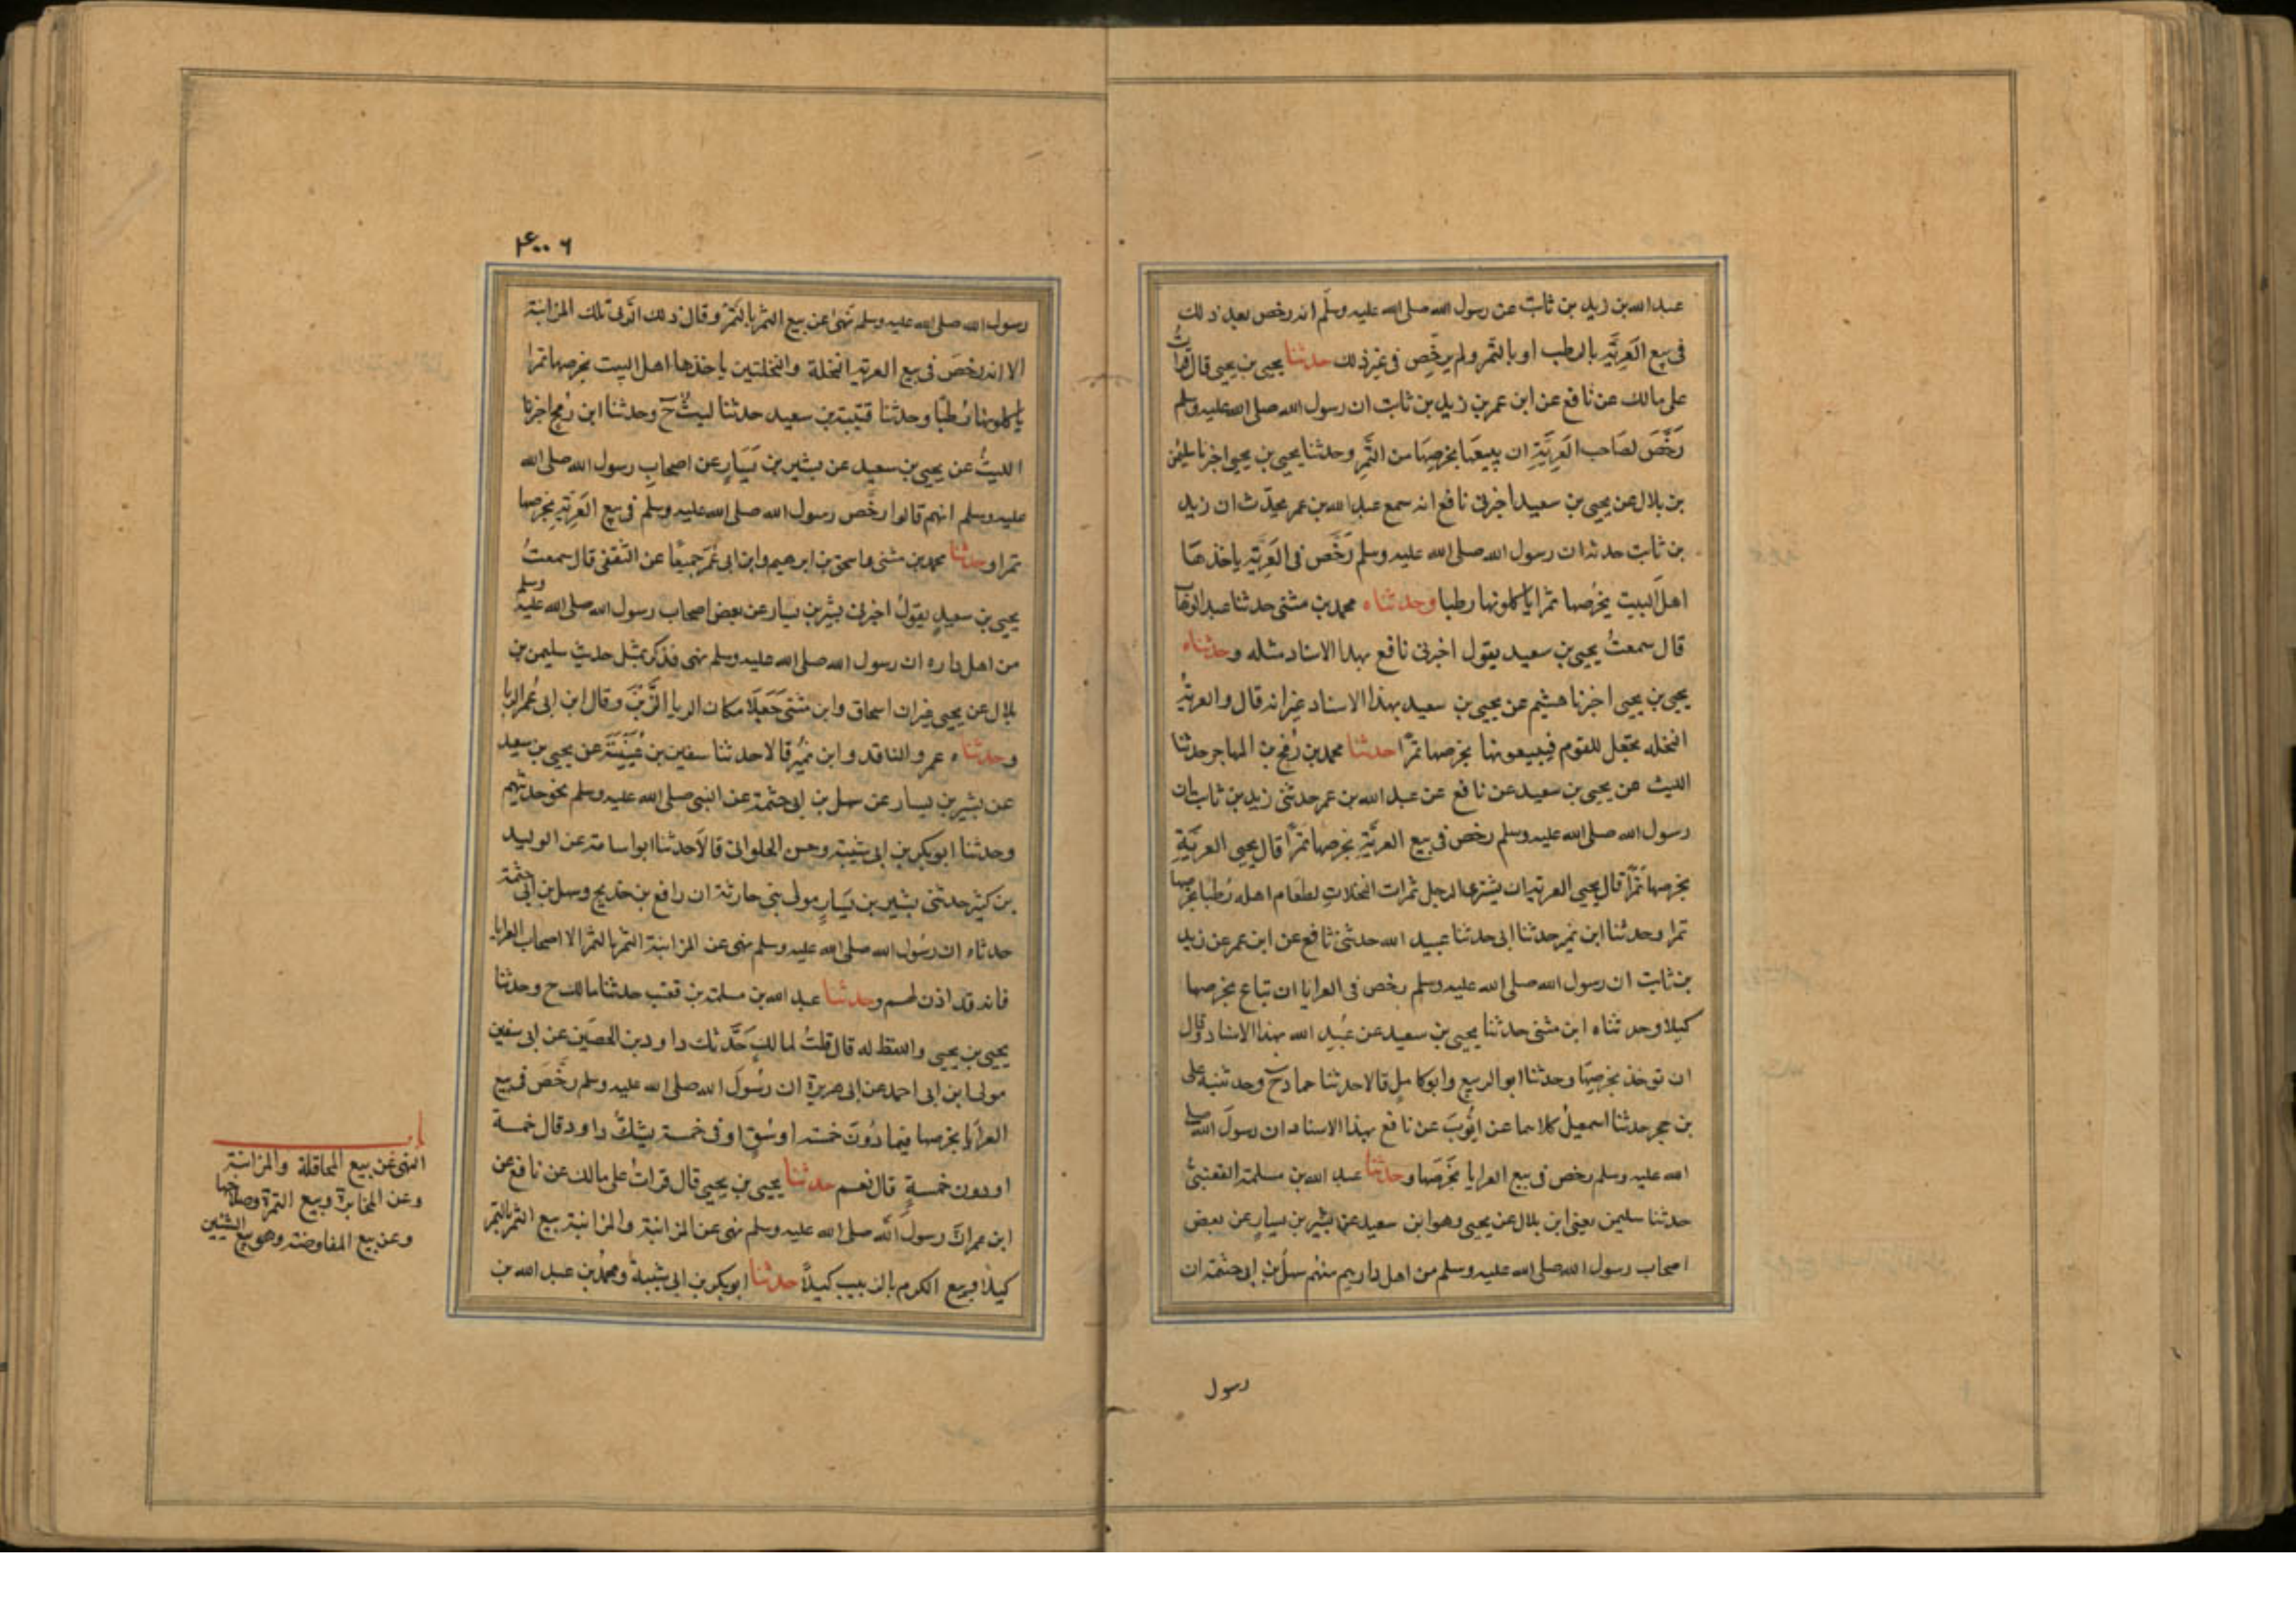 عبد الله بن زيد بن ثابت عن رسول الله صلى الله عليه وسلم انه رخص بعد ذلك
فى بيع العَرِيَّةِ بالرطب او بالتمر ولم يرخِّص فى غير ذلك حدثنا يحيى بن يحيى قال قرأتُ
على مالك عن نافع عن ابن عمر بن زيد بن ثابت ان رسول الله صلى الله عليه وسلم
رَخَّصَ لصَاحب العَرِيَّةِ ان يبيعَها بخرصِهَا من التَّمرِ وحدثنا يحيى بن يحيى اخبرنا سليمن
بن بلال عن يحيى بن سعيد اخبرنى نافع انه سمع عبد الله بن عمر يحدّث ان زيد
بن ثابت حدثه ان رسول الله صلى الله عليه وسلم رَخَّص فى العَرِيَّةِ ياخذهَا
اهلُ البيت بخرصها تمرا ياكلونها رطبا وحدثناه محمد بن مثنى حدثنا عبد الوهاب
قال سمعتُ يحيى بن سعيد يقول اخبرنى نافع بهذا الاسناد مثله وحدثناه
يحيى بن يحيى اخبرنا هشيم عن يحيى بن سعيد بهذا الاسناد غير انه قال والعريّةُ
النخله تجعل للقوم فيبيعونها بخرصها تمرًا حدثنا محمد بن رُمْح بن المهاجر حدثنا
الليث عن يحيى بن سعيد عن نافع عن عبد الله بن عمر حدثنى زيد بن ثابت ان
رسول الله صلى الله عليه وسلم رخص فى بيع العريَّةِ بخرصها تمرًا قال يحيى العريَّةِ
بخرصها تمرًا قال يحيى العرية ان يشترى الرجل ثمرات النخلاتِ لطعَام اهله رُطبًا بخرصها
تمرا وحدثنا ابن نمير حدثنا ابى حدثنا عبيد الله حدثنى نافع عن ابن عمر عن زيد
بن ثابت ان رسول الله صلى الله عليه وسلم رخص فى العرايا ان تباع بخرصها
كيلا وحدثناه ابن مثنى حدثنا يحيى بن سعيد عن عُبيد الله بهذا الاسناد وقال
ان توخذ بخرصِهَا وحدثنا ابو الربيع وابو كاملٍ قالا حدثنا حماد ح وحدثنيه على
بن حجر حدثنا اسمعيلُ كلاهما عن ايُّوبَ عن نافع بهذا الاسناد ان رسولَ الله صلى
الله عليه وسلم رخص فى بيع العرايا بخَرصَها وحدثنا عبد الله بن مسلمة القعنبىُّ
حدثنا سليمن يعنى ابن بلال عن يحيى وهو ابن سعيد عن بشير بن يسارٍ عن بعض
اصحاب رسول الله صلى الله عليه وسلم من اهل دارهم منهم سهلُ بن ابى حثمة ان
رسول
٤٠٠٦
رسول الله صلى الله عليه وسلم نَهى عن بيع الثمر بالتمر وقال ذلك الرّبى تلك المزابنة
الا انه رخصَ فى بيع العرية النخلة والنخلتين ياخذها اهل البيت بخرصها تمرا
ياكلونها رُطبًا وحدثنا قتيبة بن سعيد حدثنا ليثٌ ح وحدثنا ابن رُمح اخبرنا
الليثُ عن يحيى بن سعيد عن بشير بن يَسَارٍ عن اصحابِ رسول الله صلى الله
عليه وسلم انهم قالوا رخَّص رسول الله صلى الله عليه وسلم فى بيع العَرِيَّةِ بخرصها
تمرا وحدثنا محمد بن مثنى واسحق بن ابرهيم وابن ابى عُمَرَ جميعًا عن الثقفى قال سمعتُ
يحيى بن سعيدٍ يقولُ اخبرنى بشير بن يسار عن بعض اصحاب رسول الله صلى الله عليه وسلم
من اهل داره ان رسول الله صلى الله عليه وسلم نهى فذكر بمثل حديث سليمن بن
بلال عن يحيى غير ان اسحاق وابن مثنى جَعَلَا مكان الربا الزَّبنَ وقال ابن ابى عُمر الربا
وحدثناه عمرو الناقد وابن نُميرٍ قالا حدثنا سفين بن عُيَيْنَةَ عن يحيى بن سعيد
عن بشير بن يسار عن سهل بن ابى حثمة عن النبى صلى الله عليه وسلم نحو حديثهم
وحدثنا ابو بكر بن ابى شيبة وحسن الحلوانى قالا حدثنا ابو اسامة عن الوليد
بن كثير حدثنى بشير بن يَسَارٍ مولى بنى حارثة ان رافع بن خديج وسهل بن ابى حثمة
حدثاه ان رسُول الله صلى الله عليه وسلم نهى عن المزابنة الثمر بالتمر الا اصحاب العرايا
فانه قد اذن لهم وحدثنا عبد الله بن مسلمة بن قعنب حدثنا مالك ح وحدثنا
يحيى بن يحيى واللفظ له قال قلتُ لمالكٍ حَدَّثك داود بن الحصَين عن ابى سفين
مولى ابن ابى احمد عن ابى هريرة ان رسُولَ الله صلى الله عليه وسلم رخَّصَ فى بيع
العرَايا بخرصها فيما دُونَ خمسة اوسُقٍ او فى خمسة يشكُّ داود قال خمسة
او دون خمسةٍ قال نعم حدثنا يحيى بن يحيى قال قرات على مالك عن نافع عن
ابن عمر انَّ رسول الله صلى الله عليه وسلم نهى عن المزابنة والمزابنة بيع الثمر بالتمر
كيلاً وبيع الكرم بالزبيب كيلاً حدثنا ابو بكر بن ابى شيبة ومحمد بن عبد الله بن
باب
النهى عن بيع المحاقلة والمزابنة
وعن المخابرة وبيع الثمرة وصلاحها
وعن بيع المفاوضة وهو بيع السنين